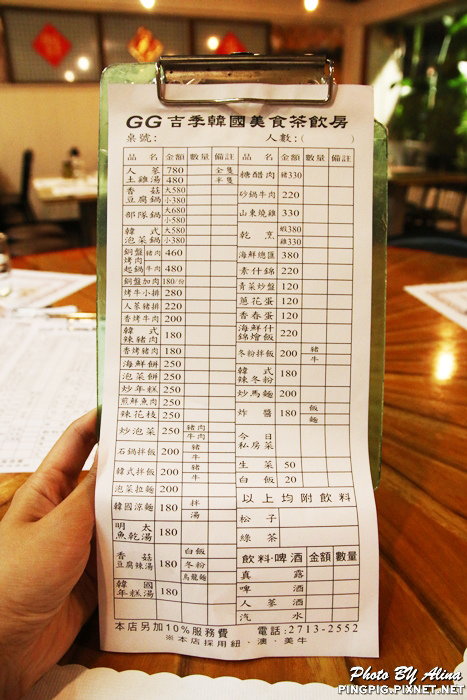 GG吉季韓國美食茶飲房
桌號：　人數：(　　)
品名 金額 數量 備註
人蔘土雞湯 780 全隻
480 半隻
香菇豆腐鍋 大580
小380
部隊鍋 大680
小580
韓式泡菜鍋 大580
小380
銅盤烤肉 豬肉 460
起鍋 牛肉 480
銅盤加肉 180/份
烤牛小排 280
人蔘豬排 220
香烤牛肉 200
韓式辣豬肉 180
香烤豬肉 180
海鮮餅 250
泡菜餅 250
炒年糕 250
煎鮮魚肉 250
辣花枝 250
炒泡菜 250 豬肉
牛肉
石鍋拌飯 200 豬
牛
韓式拌飯 200 豬
牛
泡菜拉麵 200
韓國涼麵 180 拌
湯
明太魚乾湯 180
香菇豆腐辣湯 180 白飯
冬粉
烏龍麵
韓國年糕湯 180
品名 金額 數量 備註
糖醋肉 豬330
砂鍋牛肉 220
山東燒雞 330
乾烹 蝦380
雞330
海鮮總匯 380
素什錦 220
青菜炒盤 120
蔥花蛋 120
香春蛋 120
海鮮什錦燴飯 220
冬粉拌飯 200 豬
牛
韓式辣冬粉 180
炒馬麵 200
炸醬 180 飯
麵
今日私房菜
生菜 50
白飯 20
以上均附飲料
松子
綠茶
飲料·啤酒 金額 數量
真露
啤酒
人蔘酒
汽水
本店另加10%服務費　電話:2713-2552
※本店採用紐·澳·美牛
Photo BY Alina
PINGPIG.PIXNET.NET